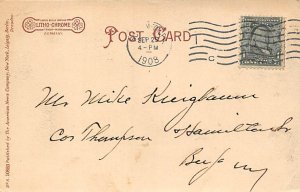 LITHO-CHROME
GERMANY
POST CARD
SEP 29
4-PM
1908
C
Mr Mike Kreighaum
Cos Thompson Hamilton St
Published by The American News Company, New York, Leipzig, Berlin, Dresden